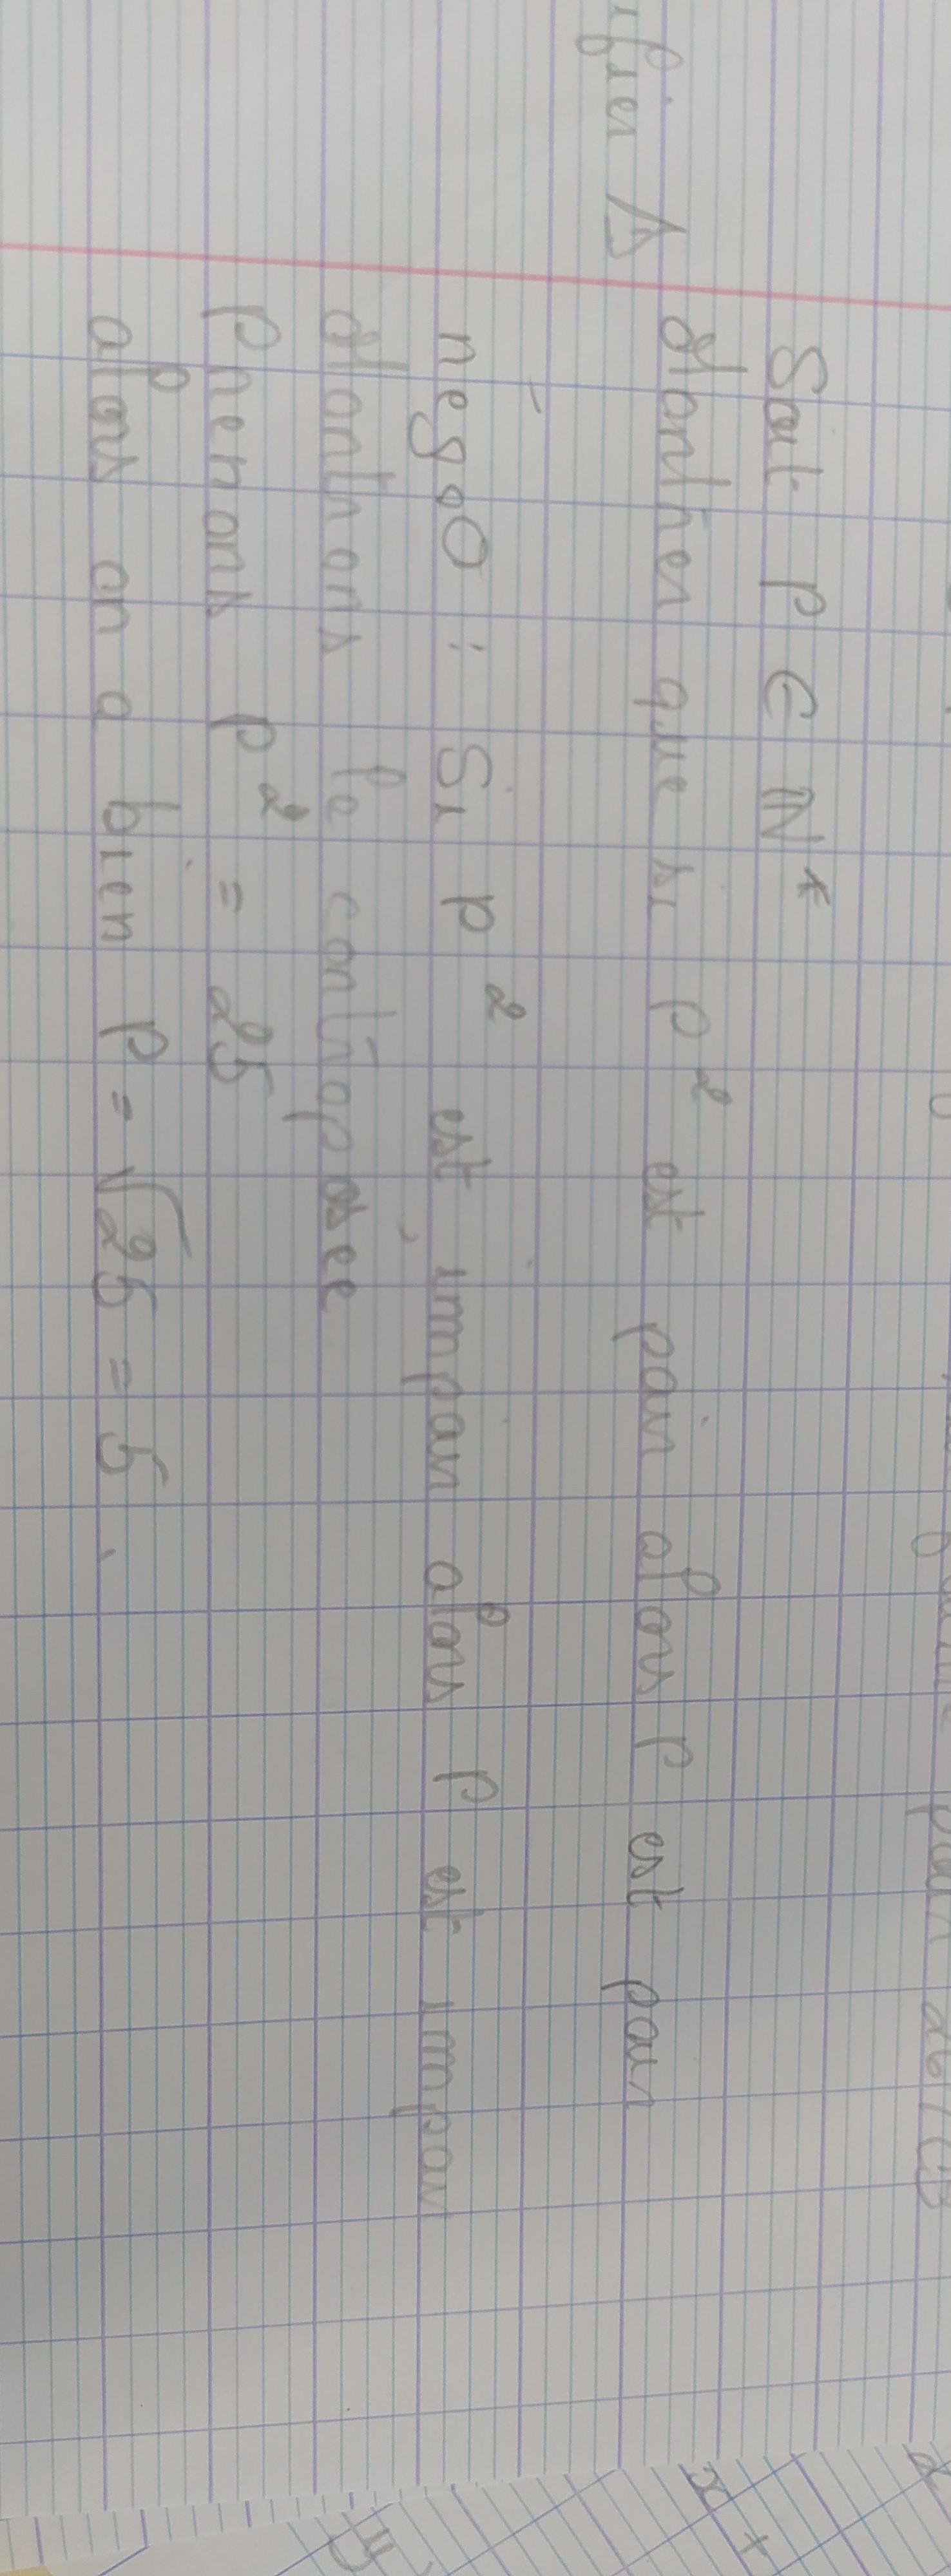 Soit p ∈ ℕ*
Montrer que si p² est pair alors p est pair
négo : Si p² est impair alors p est impair
Montrons la contraposée
Prenons p² = 25
alors on a bien p = √25 = 5.